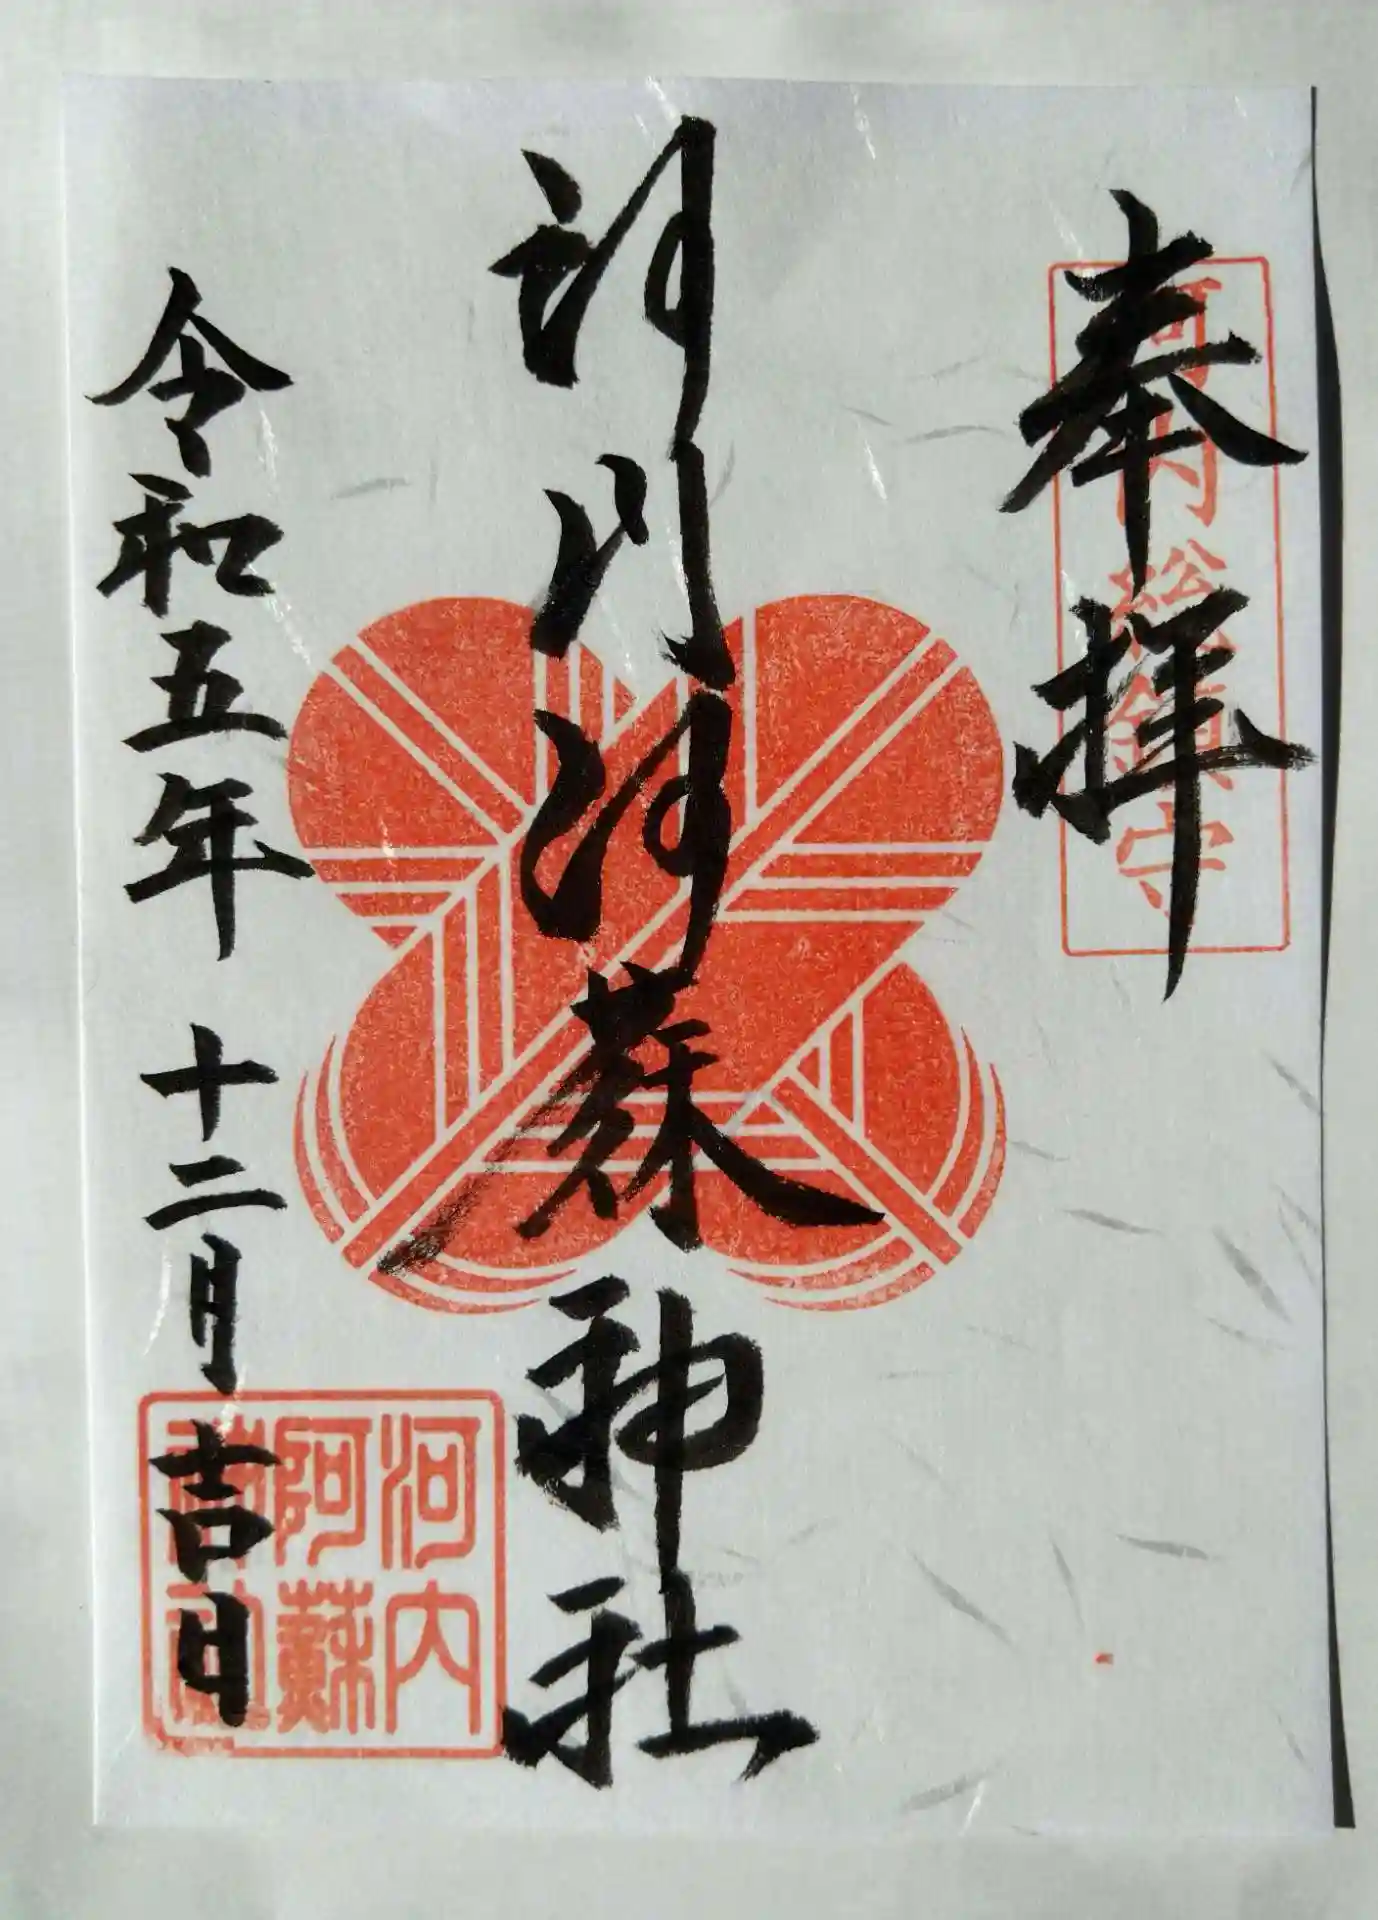 奉拝
河内総鎮守
河内阿蘇神社
令和五年十二月吉日
河内
阿蘇
神社